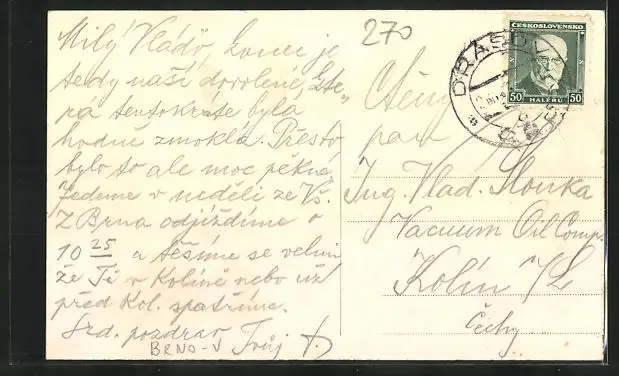 Milý Vláďo, konec je
tedy naší dovolené, kte-
rá tentokráte byla
hodně zmoklá. Přesto
bylo to ale moc pěkné.
Jedeme v neděli ze Vs.
Z Brna odjíždíme v
10 25 a těšíme se velmi
že Tě v Kolíně nebo už
před Kol. spatříme.
Srd. pozdrav Tvůj
BRNO-V
270
DRASOV
ČESKOSLOVENSKO
50 HALÉŘŮ 50
Ctěný
pan
Ing. Vlad. Slouka
Vacuum Oil Comp.
Kolín n/L
Čechy